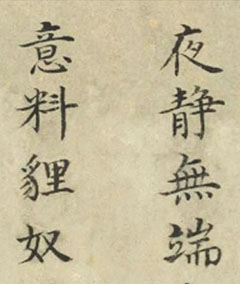 夜静無端
意料貍奴